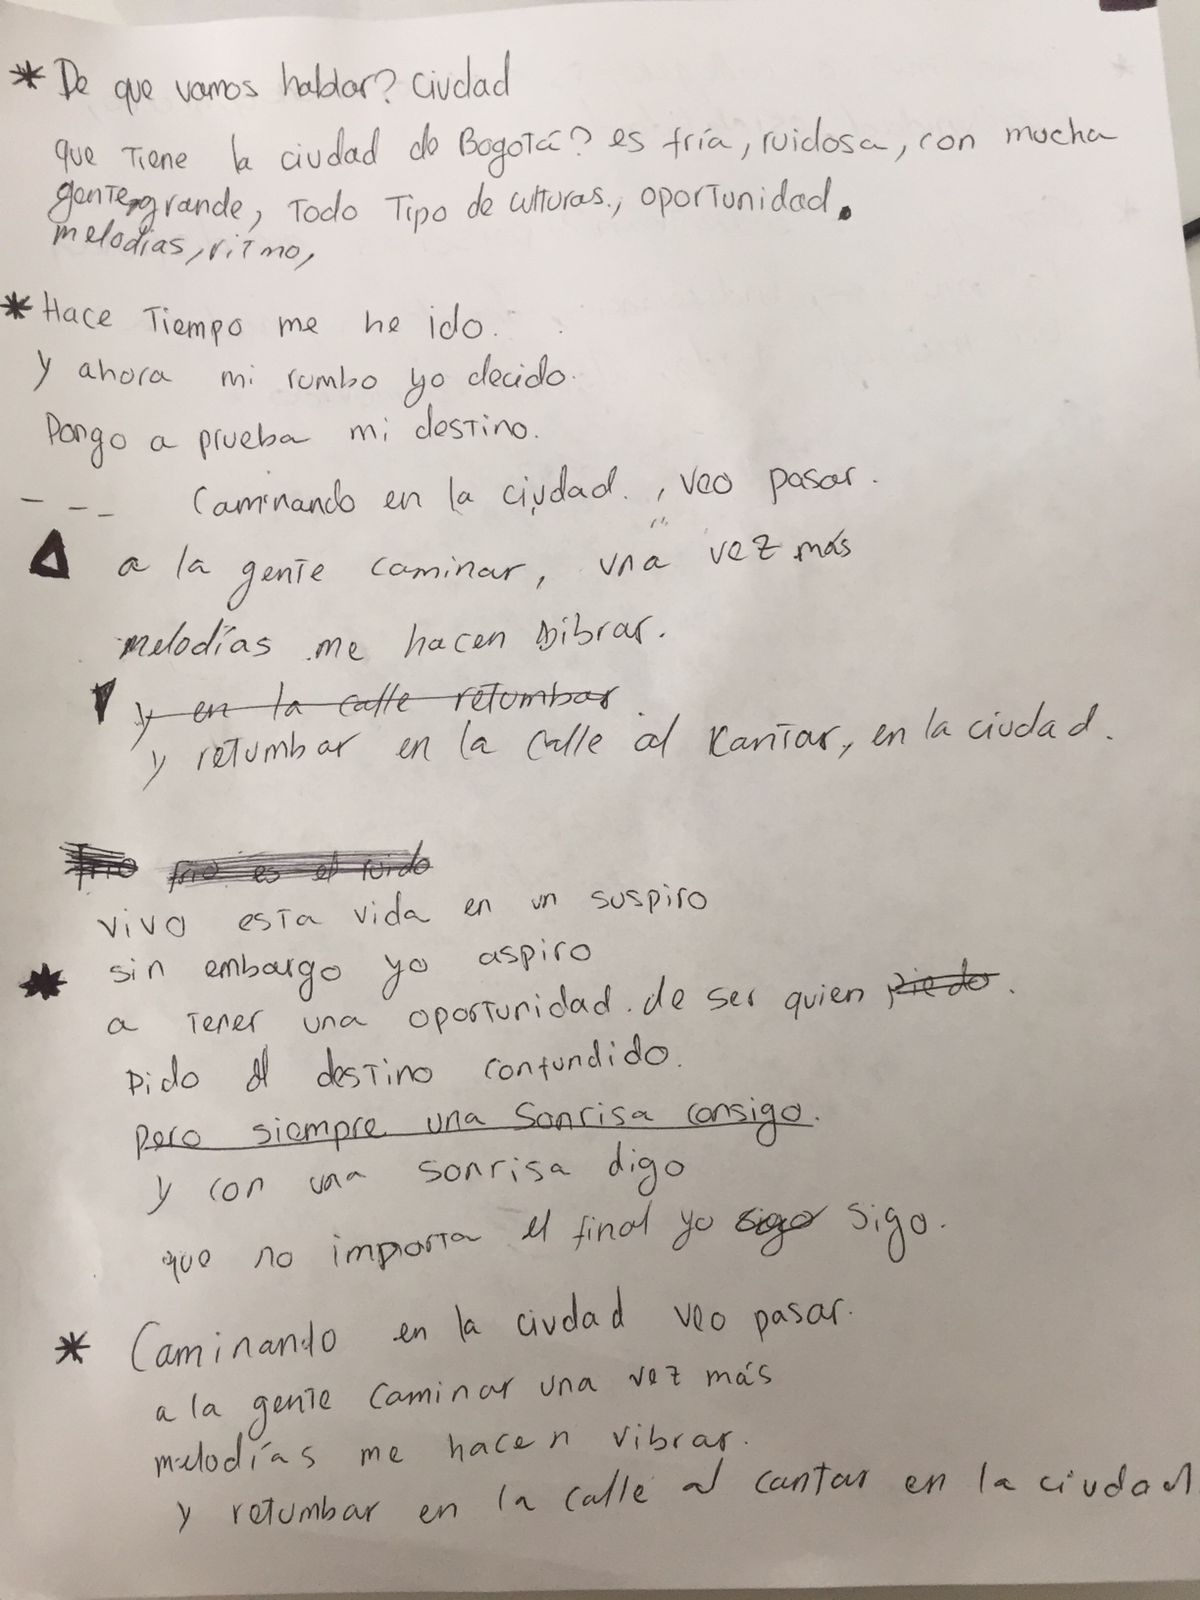 * De que vamos hablar? Ciudad
que tiene la ciudad de Bogotá? es fría, ruidosa, con mucha
gente, grande, todo tipo de culturas., oportunidad.
melodías, ritmo,
* Hace tiempo me he ido.
y ahora mi rumbo yo decido.
Pongo a prueba mi destino.
- - - Caminando en la ciudad. , veo pasar.
a la gente caminar, una vez más
melodías me hacen vibrar.
y en la calle retumbar
y retumbar en la calle al cantar, en la ciudad.
frio frio es el ruido
vivo esta vida en un suspiro
sin embargo yo aspiro
a tener una oportunidad. de ser quien piedo.
pido al destino confundido.
pero siempre una sonrisa consigo.
y con una sonrisa digo
que no importa el final yo sigo sigo.
* Caminando en la ciudad veo pasar.
a la gente caminar una vez más
melodías me hacen vibrar.
y retumbar en la calle al cantar en la ciudad